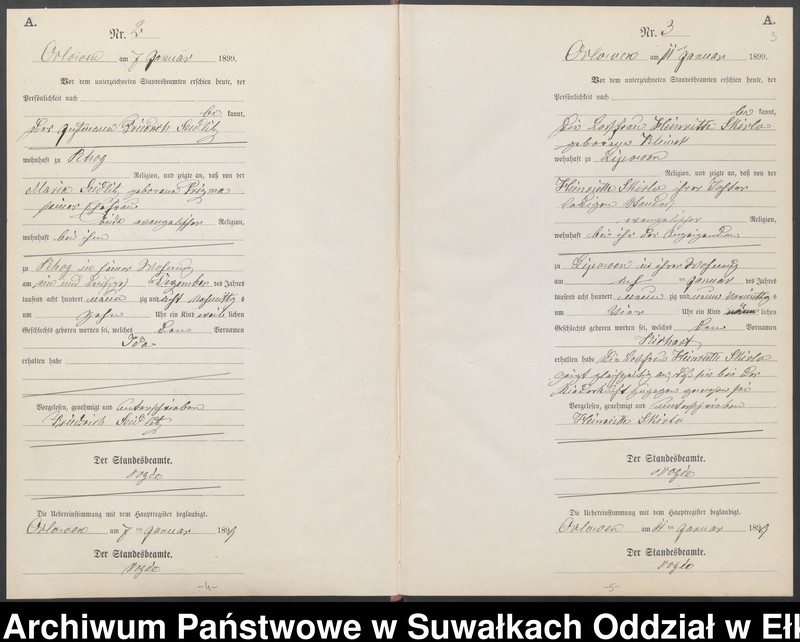 A.
Nr. 2
Orlowen am 7 Januar 1899.
Vor dem unterzeichneten Standesbeamten erschien heute, der
Persönlichkeit nach
be kannt,
Der Friedrich Seidlitz
wohnhaft zu
Religion, und zeigte an, daß von der
Maria Seidlitz geborene
seiner Ehefrau
beide evangelischer Religion,
wohnhaft bei ihm
zu in seiner Wohnung
am ein und dreißig Dezember des Jahres
tausend acht hundert neun zig und acht Vormittags
um zehn Uhr ein Kind weib lichen
Geschlechts geboren worden sei, welches den Vornamen
Ida
erhalten habe
Vorgelesen, genehmigt und unterschrieben
Friedrich Seidlitz
Der Standesbeamte.
Die Uebereinstimmung mit dem Hauptregister beglaubigt.
Orlowen am 7 ten Januar 1899
Der Standesbeamte.
-4-
A.
3
Nr. 3
Orlowen am 11 Januar 1899.
Vor dem unterzeichneten Standesbeamten erschien heute, der
Persönlichkeit nach
be kannt,
Die Losfrau Heinriette Skirlo
geborene
wohnhaft zu Lipowen
Religion, und zeigte an, daß von der
Heinriette Skirlo ihrer Tochter
ledigen Standes
evangelischer Religion,
wohnhaft bei ihr der Anzeigenden
zu Lipowen in ihrer Wohnung
am Januar des Jahres
tausend acht hundert neun zig und neun Vormittag s
um vier Uhr ein Kind männ lichen
Geschlechts geboren worden sei, welches den Vornamen
Richart
erhalten habe Die Losfrau Heinriette Skirlo
zeigt gleichzeitig an, daß sie bei der
Niederkunft zugegen gewesen sei
Vorgelesen, genehmigt und unterschrieben
Heinriette Skirlo
Der Standesbeamte.
Die Uebereinstimmung mit dem Hauptregister beglaubigt.
Orlowen am 11 ten Januar 1899
Der Standesbeamte.
-5-
Archiwum Państwowe w Suwałkach Oddział w Eł